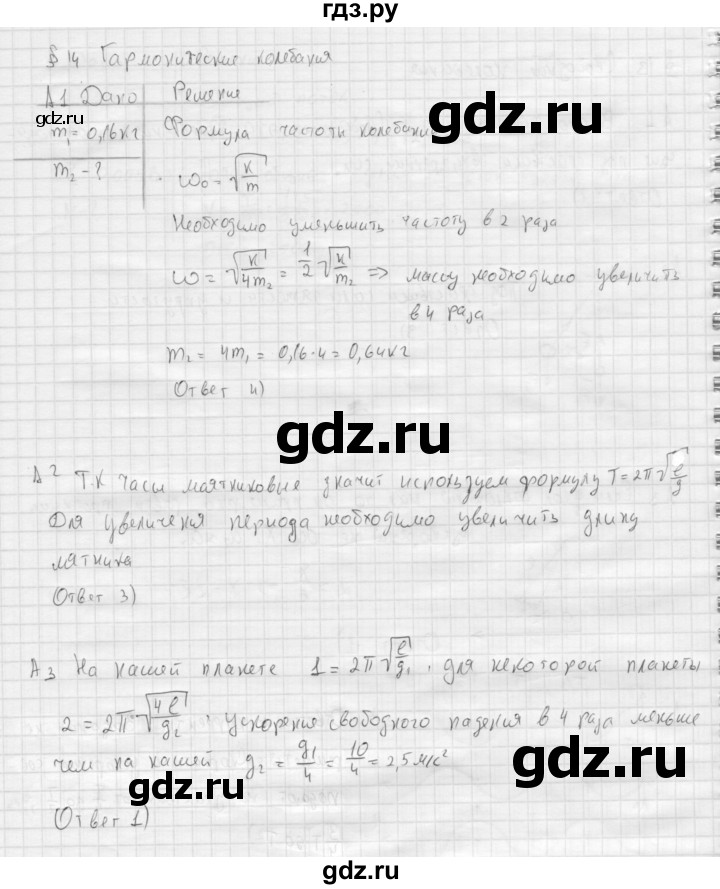 гдз.ру
§ 14 Гармонические колебания
А1 Дано Решение
gdz.ru
gdz.ru
m₁ = 0,16 кг Формула частоти колебаний
m₂ - ? ω₀ = √(к/m)
Необходимо уменьшить частоту в 2 раза
ω = √(к/4m₂) = 1/2 √(к/m₂) => массу необходимо увеличить
в 4 раза
m₂ = 4m₁ = 0,16·4 = 0,64 кг
Ответ 4)
gdz.ru
А2 Т.к часы маятниковые значит используем формулу T = 2π√(ℓ/g)
Для увеличения периода необходимо увеличить длину
мятника
(Ответ 3)
А3 На нашей планете 1 = 2π√(ℓ/g₁), для некоторой планеты
2 = 2π√(4ℓ/g₂), Ускорение свободного падения в 4 раза меньше
gdz.ru
чем на нашей g₂ = g₁/4 = 10/4 = 2,5 м/с²
gdz.ru
(Ответ 1)
gdz.ru
gdz.ru